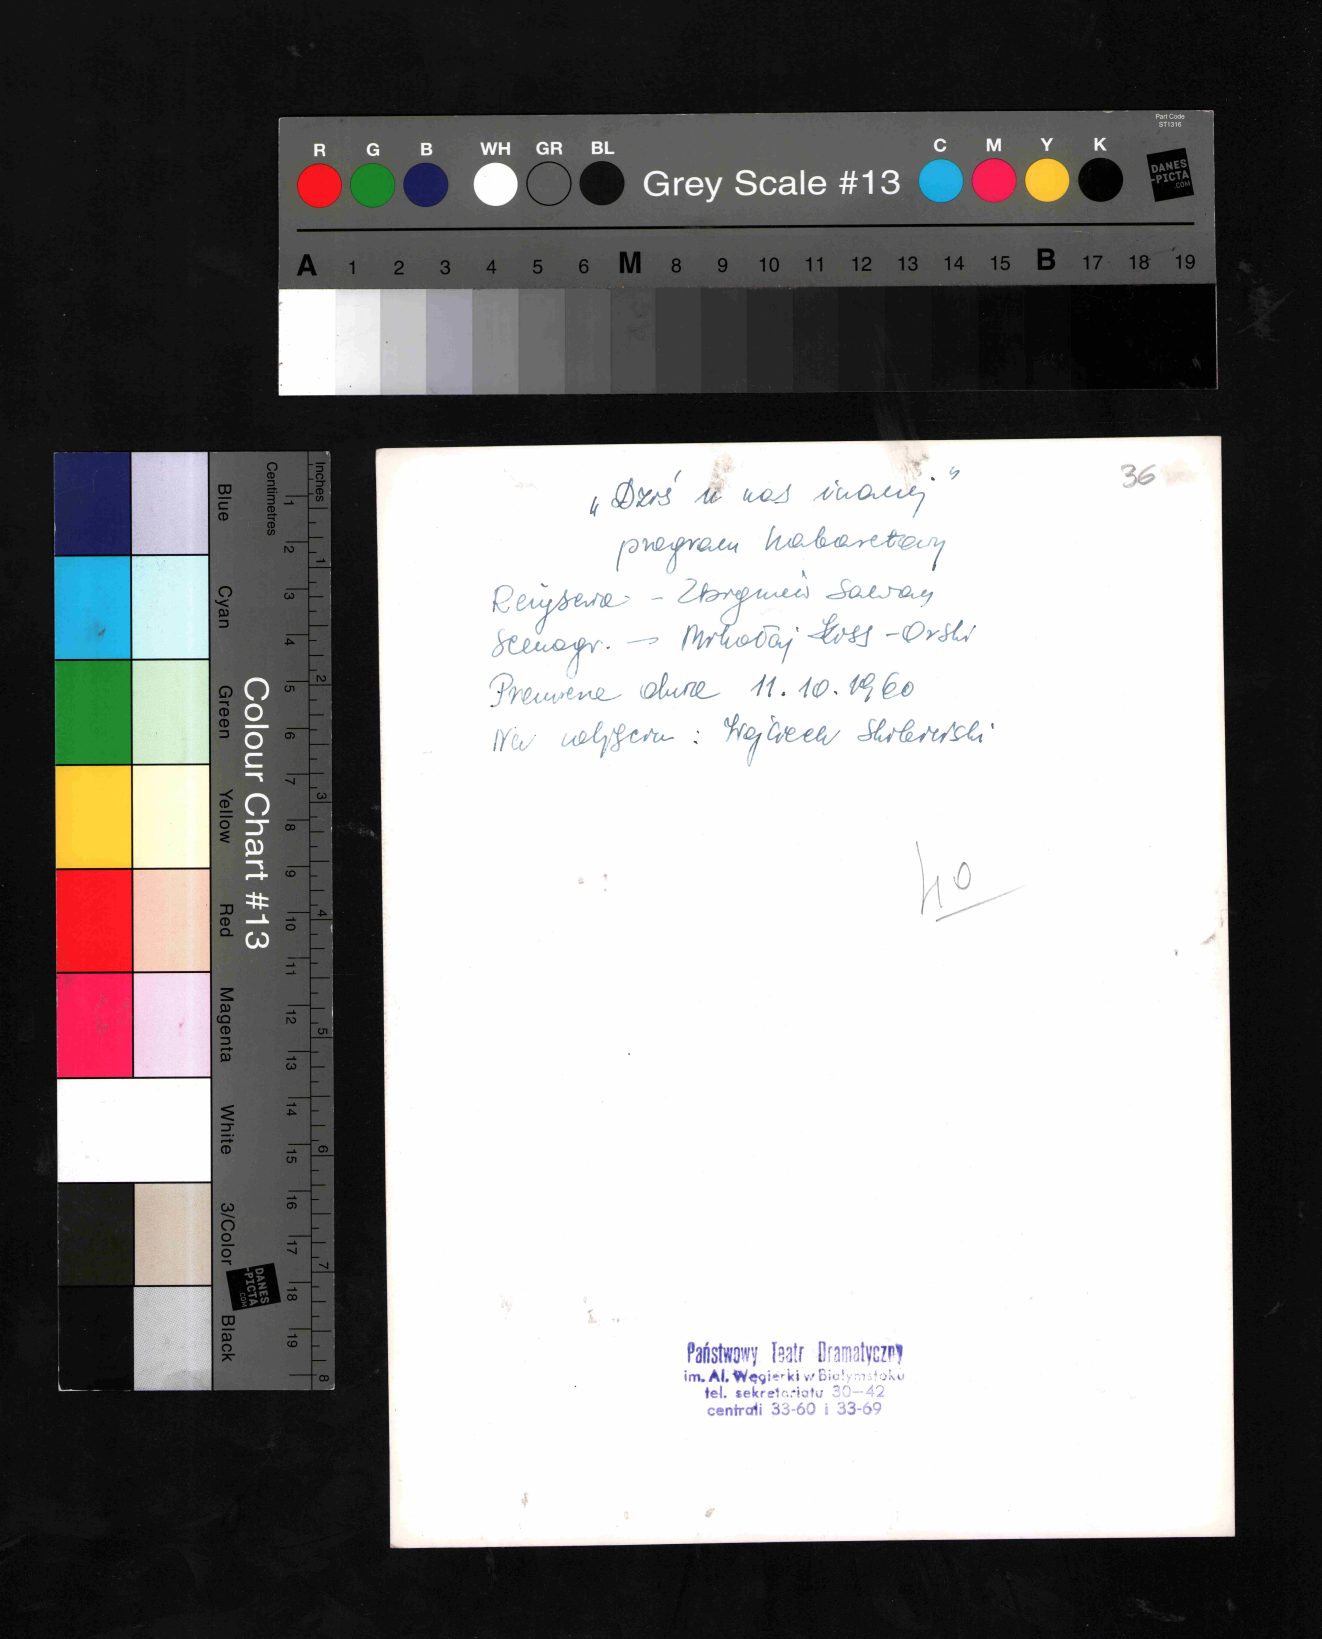 Part Code
ST1316
R G B WH GR BL Grey Scale #13 C M Y K
DANES
-PICTA
.COM
A 1 2 3 4 5 6 M 8 9 10 11 12 13 14 15 B 17 18 19
Inches
Centimetres
1 2 3 4 5 6 7 8 9 10 11 12 13 14 15 16 17 18 19
1 2 3 4 5 6 7 8
Colour Chart #13
Blue
Cyan
Green
Yellow
Red
Magenta
White
3/Color
Black
DANES
-PICTA
.COM
36
„Dziś u nas inaczej"
program kabaretowy
Reżyseria - Zbigniew Sawan
Scenogr. - Mikołaj -Orski
Premiera dnia 11.10.1960
Na zdjęciu: Wojciech Skibiński
40
Państwowy Teatr Dramatyczny
im. Al. Węgierki w Białymstoku
tel. sekretariatu 30-42
centrali 33-60 i 33-69